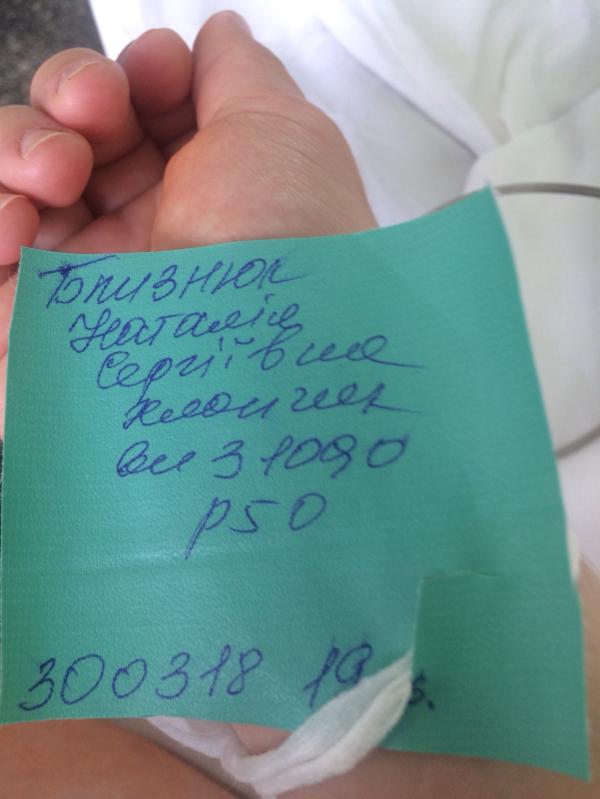 Близнюк
Наталія
Сергіївна
хлопчик
31090
р50
300318 19